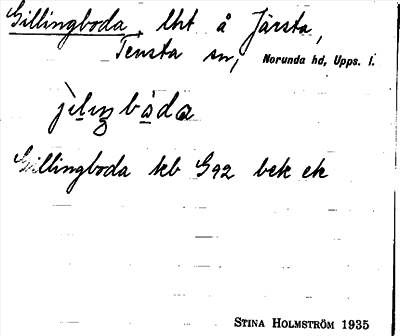 Gillingboda, lht å Järsta,
Tensta sn, Norunda hd, Upps. l.
jìlıŋbòda
Gillingboda kb G92 bek ek
STINA HOLMSTRÖM 1935